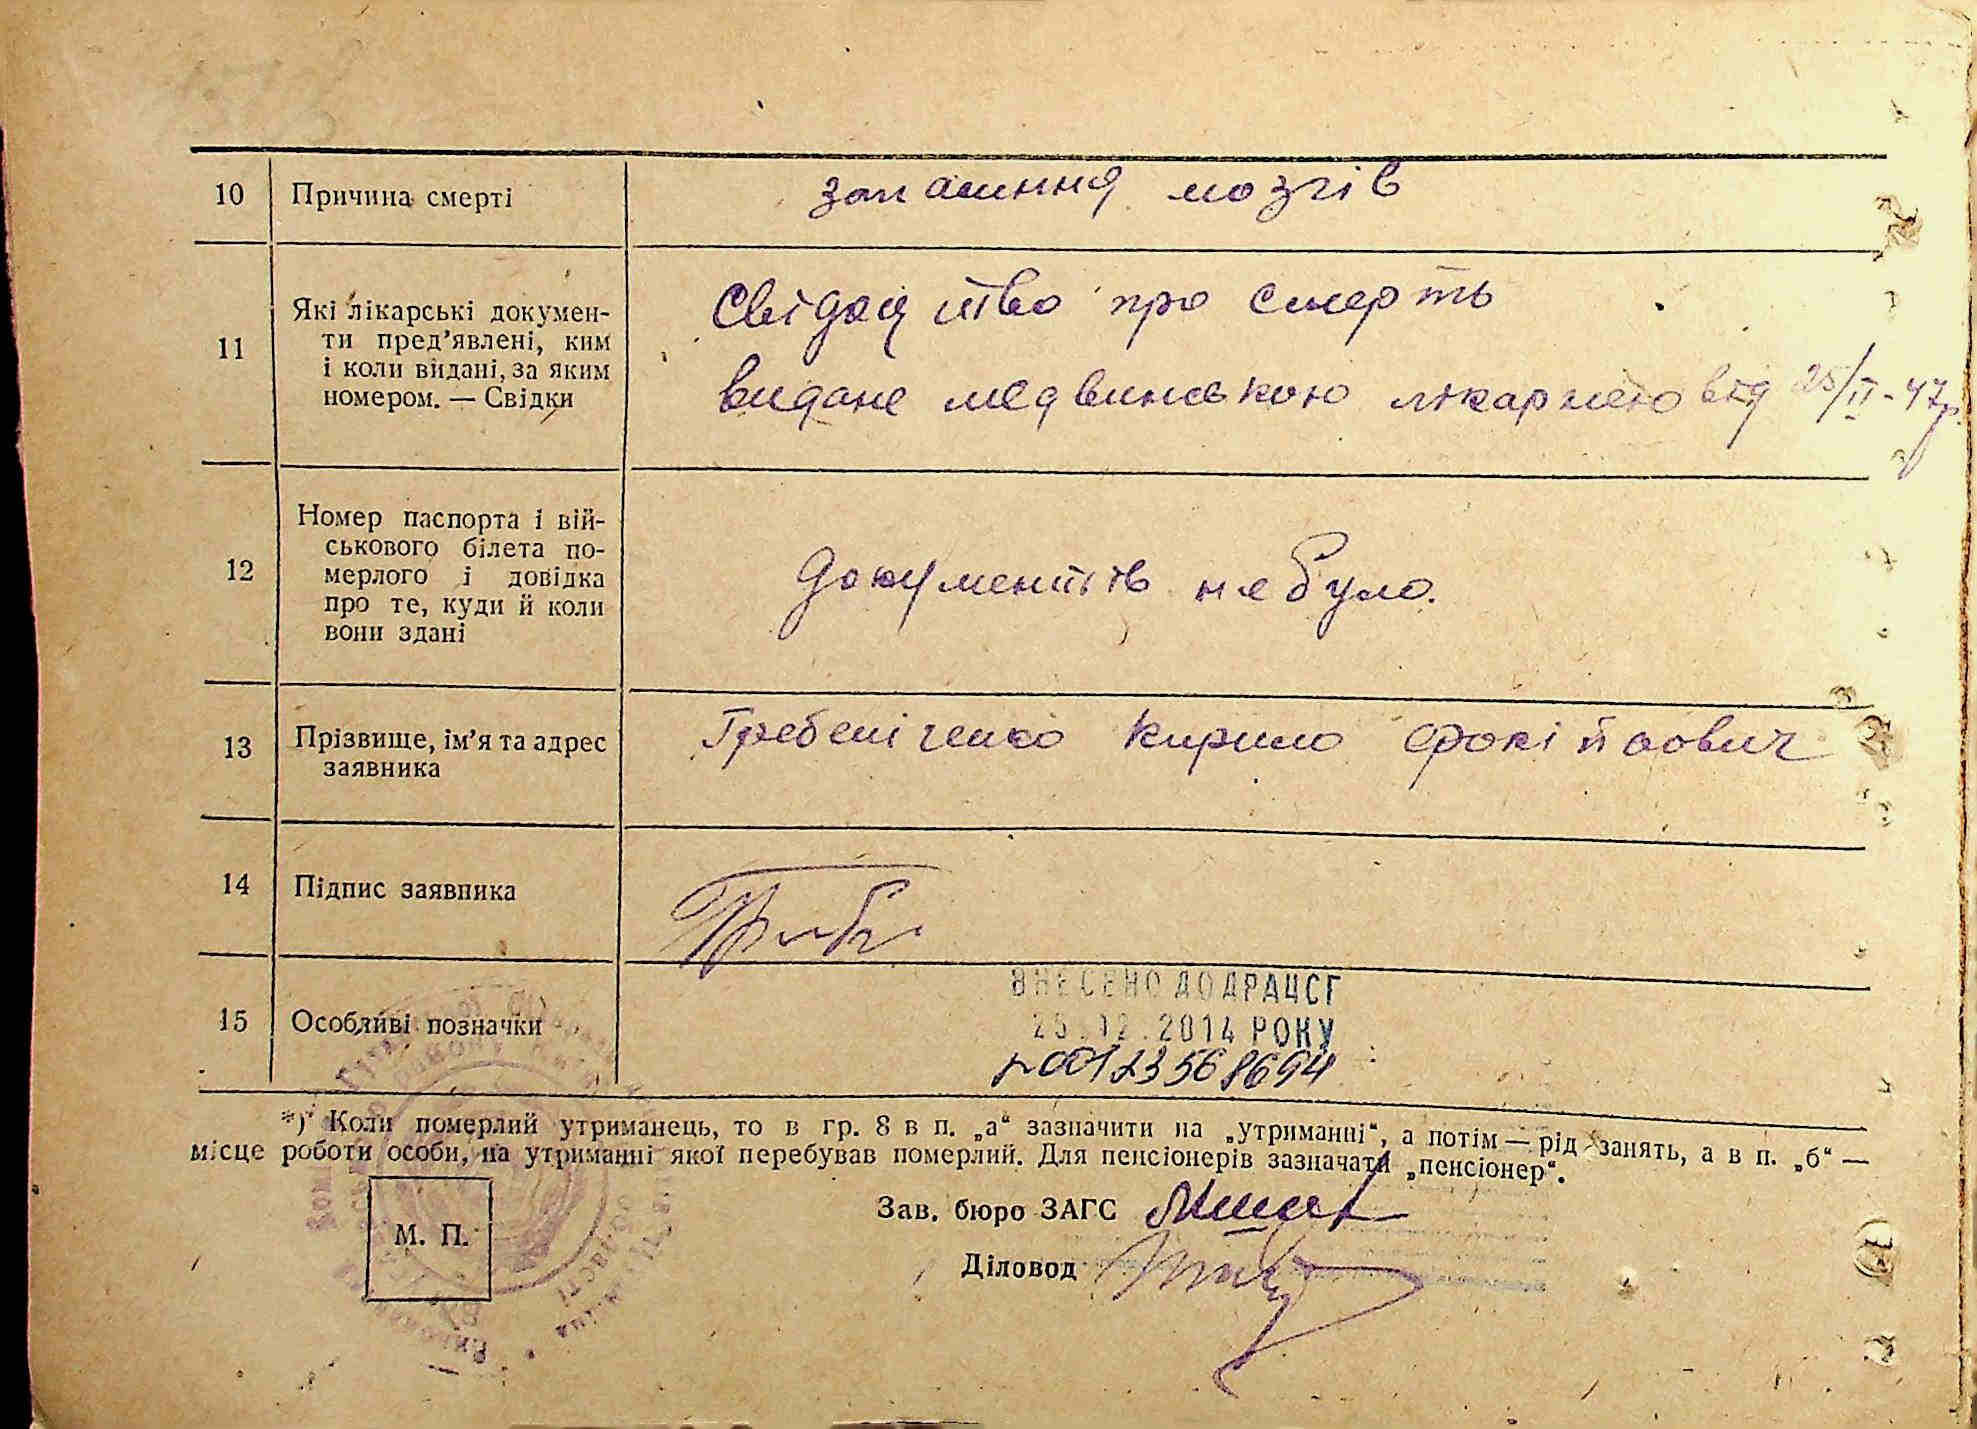 10 Причина смерті запалиння мозгів
11 Які лікарські докумен-
ти пред'явлені, ким
і коли видані, за яким
номером. — Свідки
Свідоцтво про смерть
видане медвинською лікарнею від 25/II-47р.
12 Номер паспорта і вій-
ськового білета по-
мерлого і довідка
про те, куди й коли
вони здані
Документів не було.
13 Прізвище, ім'я та адрес
заявника
Кирило
14 Підпис заявника
15 Особливі позначки
ВНЕСЕНО ДО ДРАЦСГ
25.12.2014 РОКУ
*) Коли померлий утриманець, то в гр. 8 в п. „а“ зазначити на „утриманні“, а потім — рід занять, а в п. „б“ —
місце роботи особи, на утриманні якої перебував померлий. Для пенсіонерів зазначати „пенсіонер“.
М. П.
Зав. бюро ЗАГС
Діловод